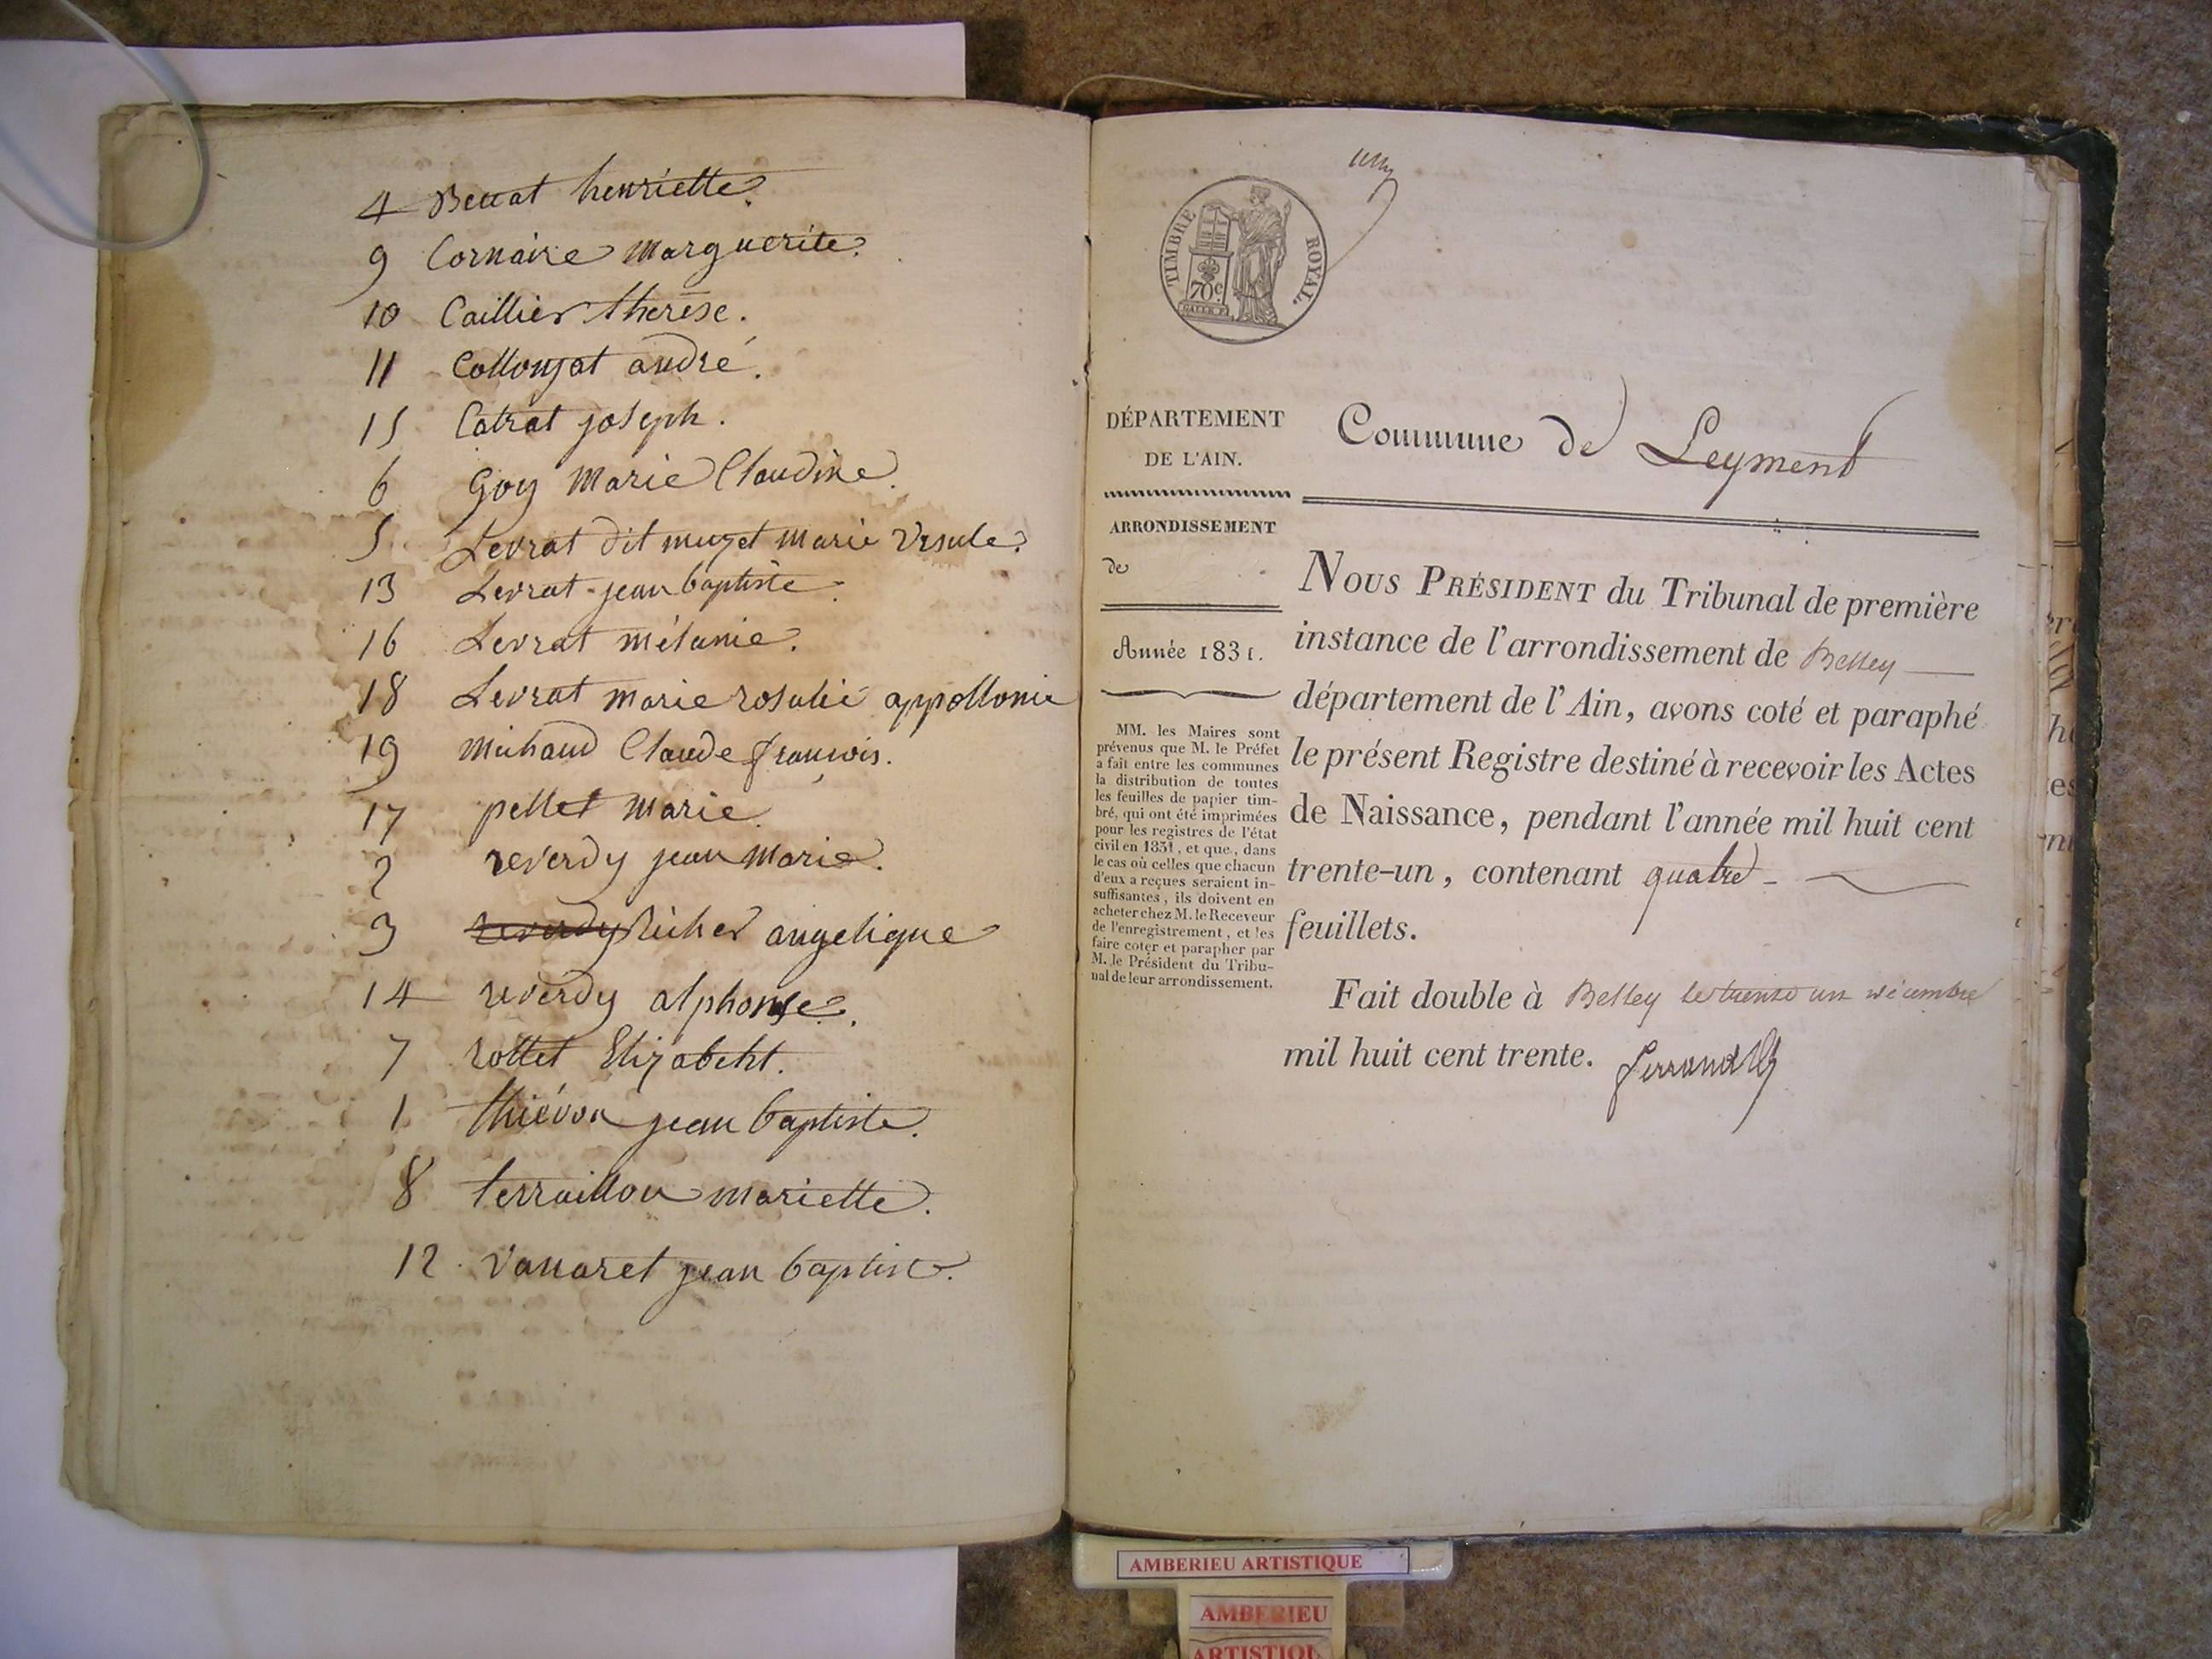 4 Benat henriette.
9 Cornaire Marguerite.
10 Caillier therèse.
11 Collonjat andré.
15 Catrat joseph.
6 Goy Marie Claudine.
5 Levrat dit muzet marie Ursule.
13 Levrat jean baptiste.
16 Levrat mélanie.
18 Levrat marie rosalie appollonie
19 Michaud Claude françois.
17 pellet Marie.
2 reverdy jean Marie.
3 reverdy Richer angelique
14 reverdy alphonse.
7 rottet Elizabeht.
1 thiévon jean baptiste.
8 terraillon mariette.
12 Vanaret jean baptiste.
un
TIMBRE ROYAL.
70 c.
DÉPARTEMENT
DE L'AIN.
ARRONDISSEMENT
de
Année 1831.
MM. les Maires sont
prévenus que M. le Préfet
a fait entre les communes
la distribution de toutes
les feuilles de papier tim-
bré, qui ont été imprimées
pour les registres de l'état
civil en 1831, et que, dans
le cas où celles que chacun
d'eux a reçues seraient in-
suffisantes, ils doivent en
acheter chez M. le Receveur
de l'enregistrement, et les
faire coter et parapher par
M. le Président du Tribu-
nal de leur arrondissement.
Commune de Leyment
NOUS PRÉSIDENT du Tribunal de première
instance de l'arrondissement de Belley
département de l'Ain, avons coté et paraphé
le présent Registre destiné à recevoir les Actes
de Naissance, pendant l'année mil huit cent
trente-un, contenant quatre
feuillets.
Fait double à Belley le trente un décembre
mil huit cent trente.
AMBERIEU ARTISTIQUE
AMBERIEU
ARTISTIQU